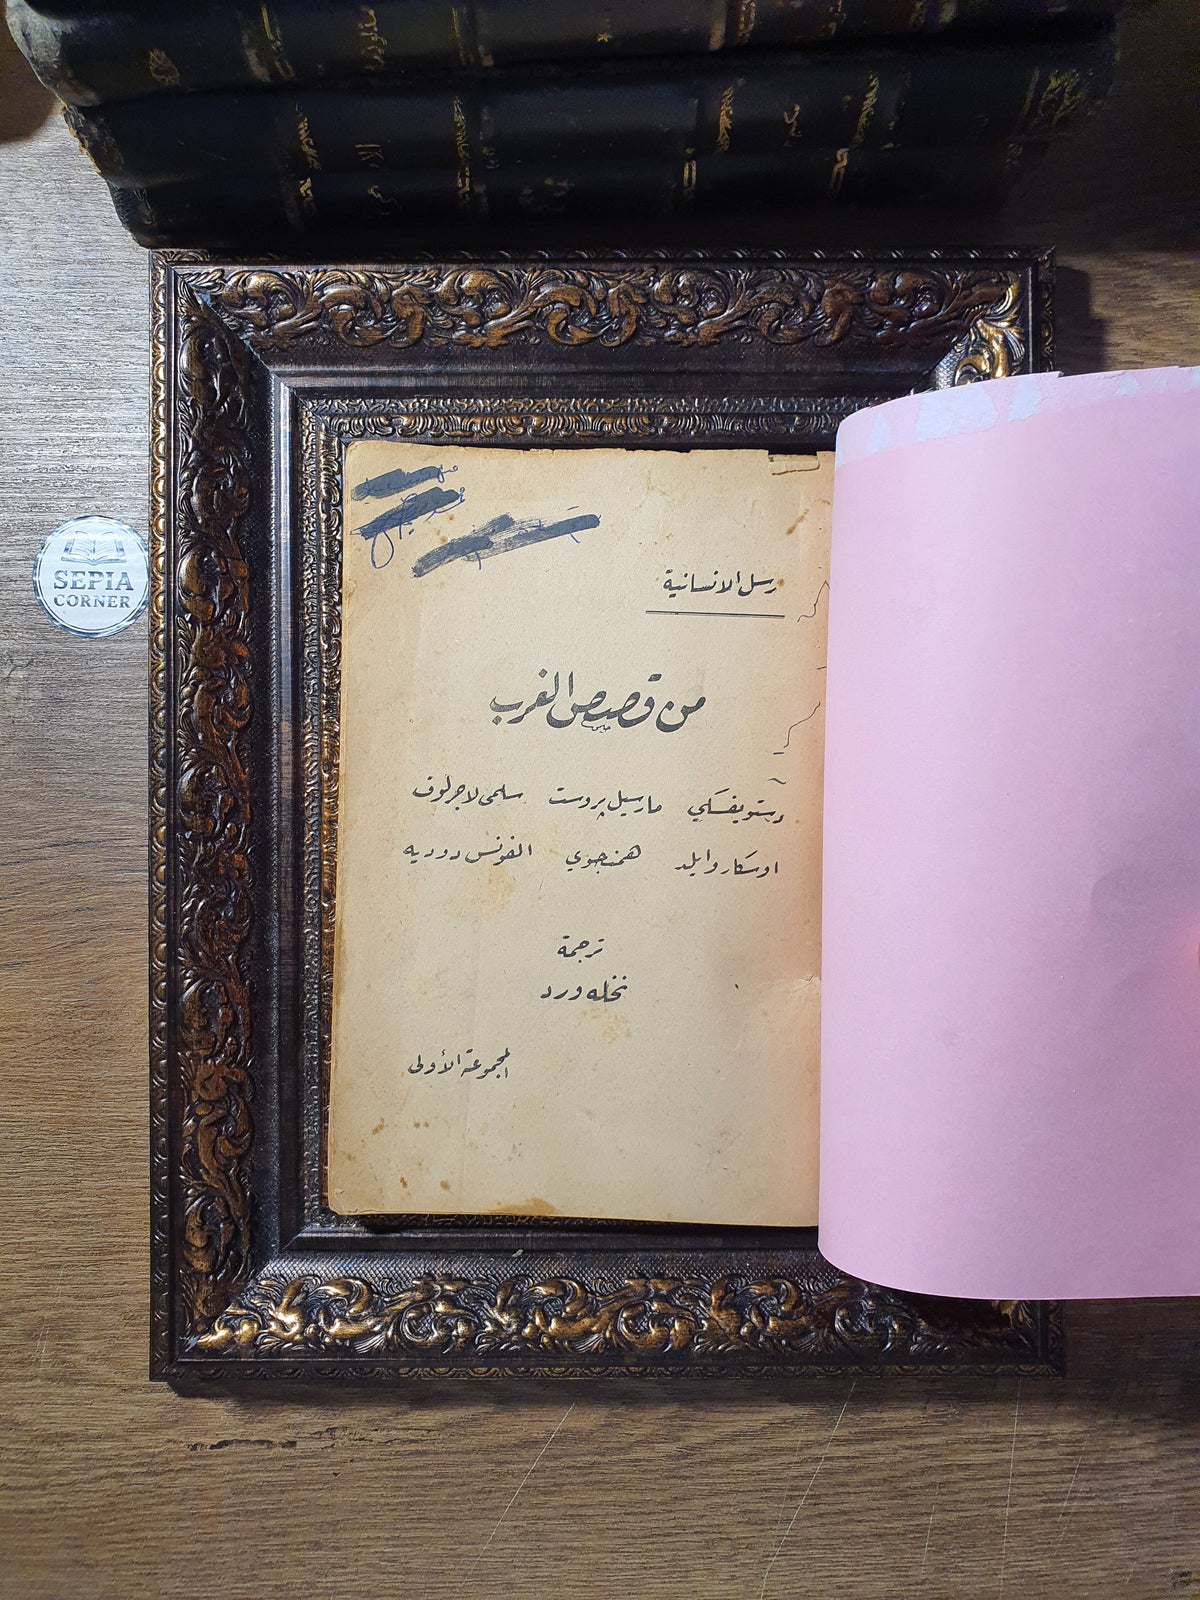 رسل الانسانية
من قصص الغرب
دستويفسكي مارسيل بروست سلمى لاجرلوف
اوسكار وايلد همنجوي الفونس دوديه
ترجمة
نخله ورد
المجموعة الأولى
SEPIA
CORNER